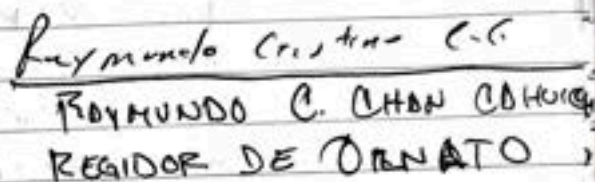 Raymundo Cristino C.C.
RAYMUNDO C. CHAN CAHUICH
REGIDOR DE ORNATO